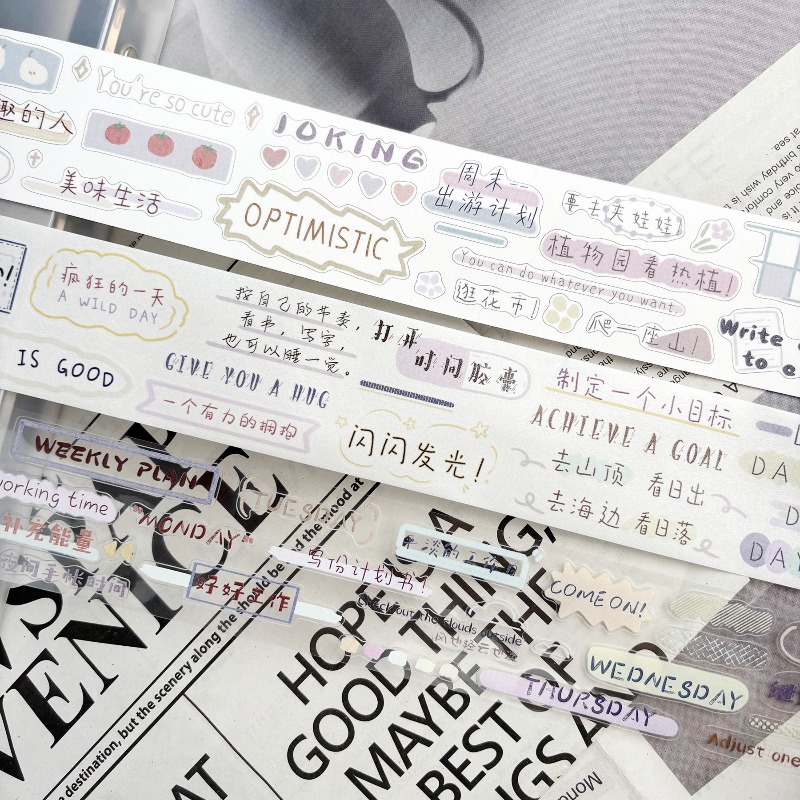 You're so cute
趣的人
JOKING
美味生活
OPTIMISTIC
周末
出游计划
要去买娃娃!
植物园看热植!
You can do whatever you want
逛花市!
爬一座山!
Write
to e
疯狂的一天
A WILD DAY
按自己的节奏,
看书,写字,
也可以睡一觉。
打开
时间胶囊
IS GOOD
GIVE YOU A HUG
一个有力的拥抱
闪闪发光!
制定一个小目标
ACHIEVE A GOAL
去山顶 看日出
去海边 看日落
DA
D
DAY
WEEKLY PLAN
working time
补充能量
夜间手帐时间
"MONDAY"
TUESDAY
好好工作
写份计划书!
COME ON!
Check out the clouds outside
WEDNESDAY
THURSDAY
Adjust one
VENICE
e destination, but the scenery along the should be and the mood at
HOPE
GOOD THING,
MAYBE THE
BEST OF
NGS A
AT
Mond